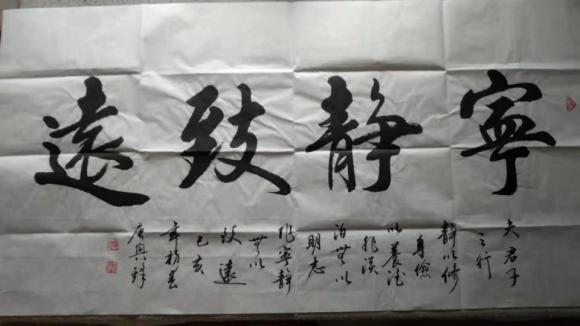 寧靜致遠
夫君子
之行
靜以修
身儉
以養德
非淡
泊無以
明志
非寧靜
無以
致遠
己亥